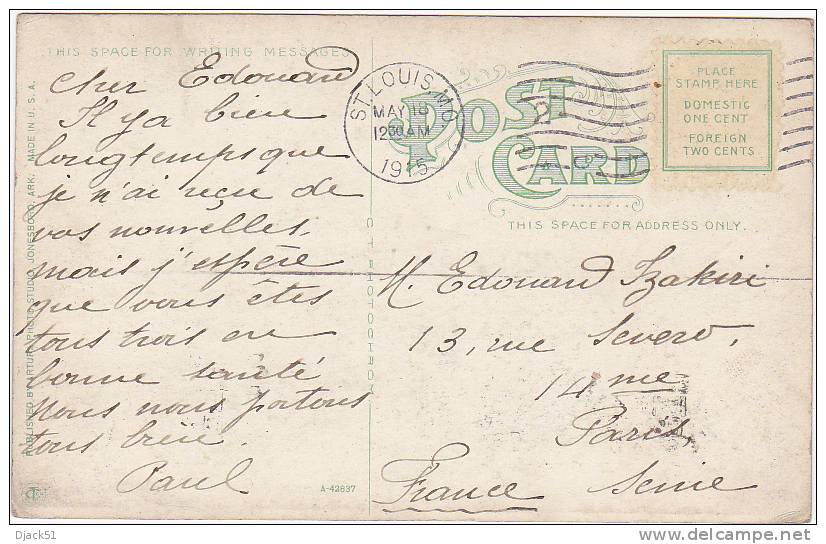 THIS SPACE FOR WRITING MESSAGES
Cher Edouard
Il y a bien
longtemps que
je n'ai reçu de
vos nouvelles
mais j'espère
que vous êtes
tous trois en
bonne santé
Nous nous portons
tous bien.
Paul
PUBLISHED BY ARTURA PHOTO STUDIO, JONESBORO, ARK. MADE IN U.S.A.
C.T. PHOTOCHROM
A-42637
ST. LOUIS, MO.
MAY 18
1230 AM
1915
POST
CARD
PLACE
STAMP HERE
DOMESTIC
ONE CENT
FOREIGN
TWO CENTS
THIS SPACE FOR ADDRESS ONLY.
M. Edouard Izakiri
13, rue Severo,
14 me
Paris,
France Seine
Djack51
http://www.delcampe.net